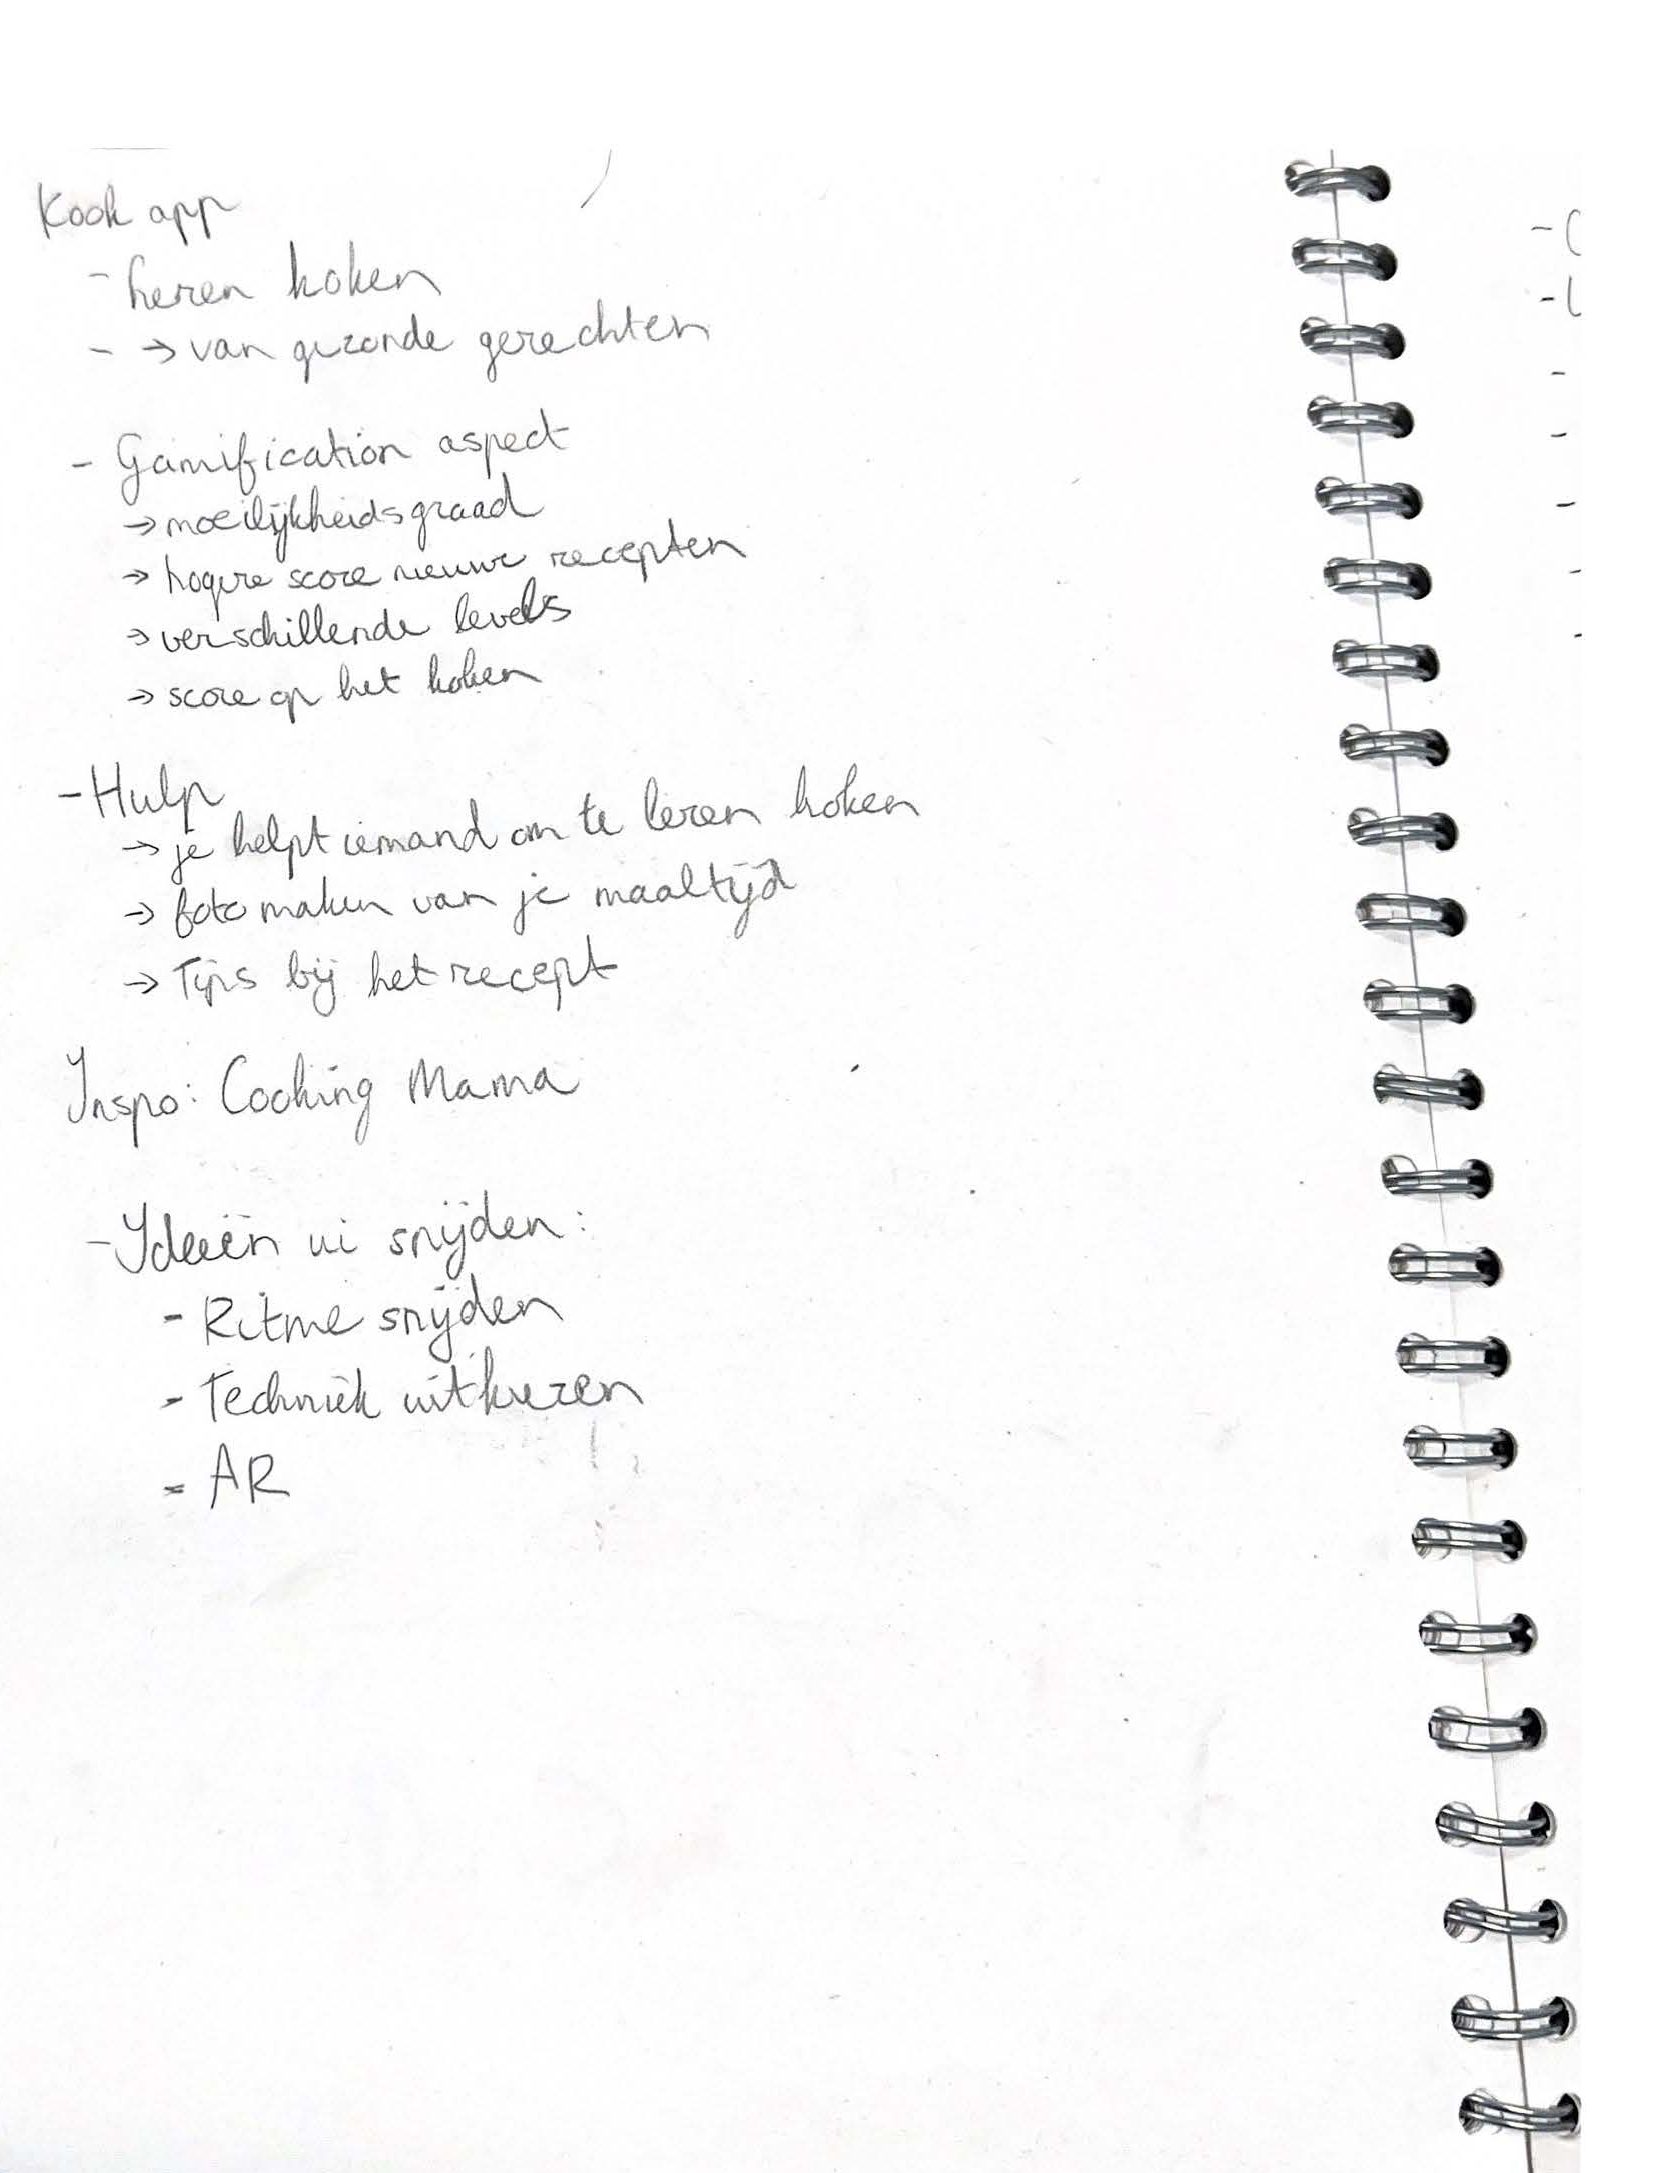 Kook app
- leren koken
- → van gezonde gerechten
- Gamification aspect
→ moeilijkheidsgraad
→ hogere score nieuwe recepten
→ verschillende levels
→ score op het koken
- Hulp
→ je helpt iemand om te leren koken
→ foto maken van je maaltijd
→ Tips bij het recept
Inspo: Cooking Mama
- Ideeën ui snijden:
- Ritme snijden
- Techniek uitkiezen
- AR